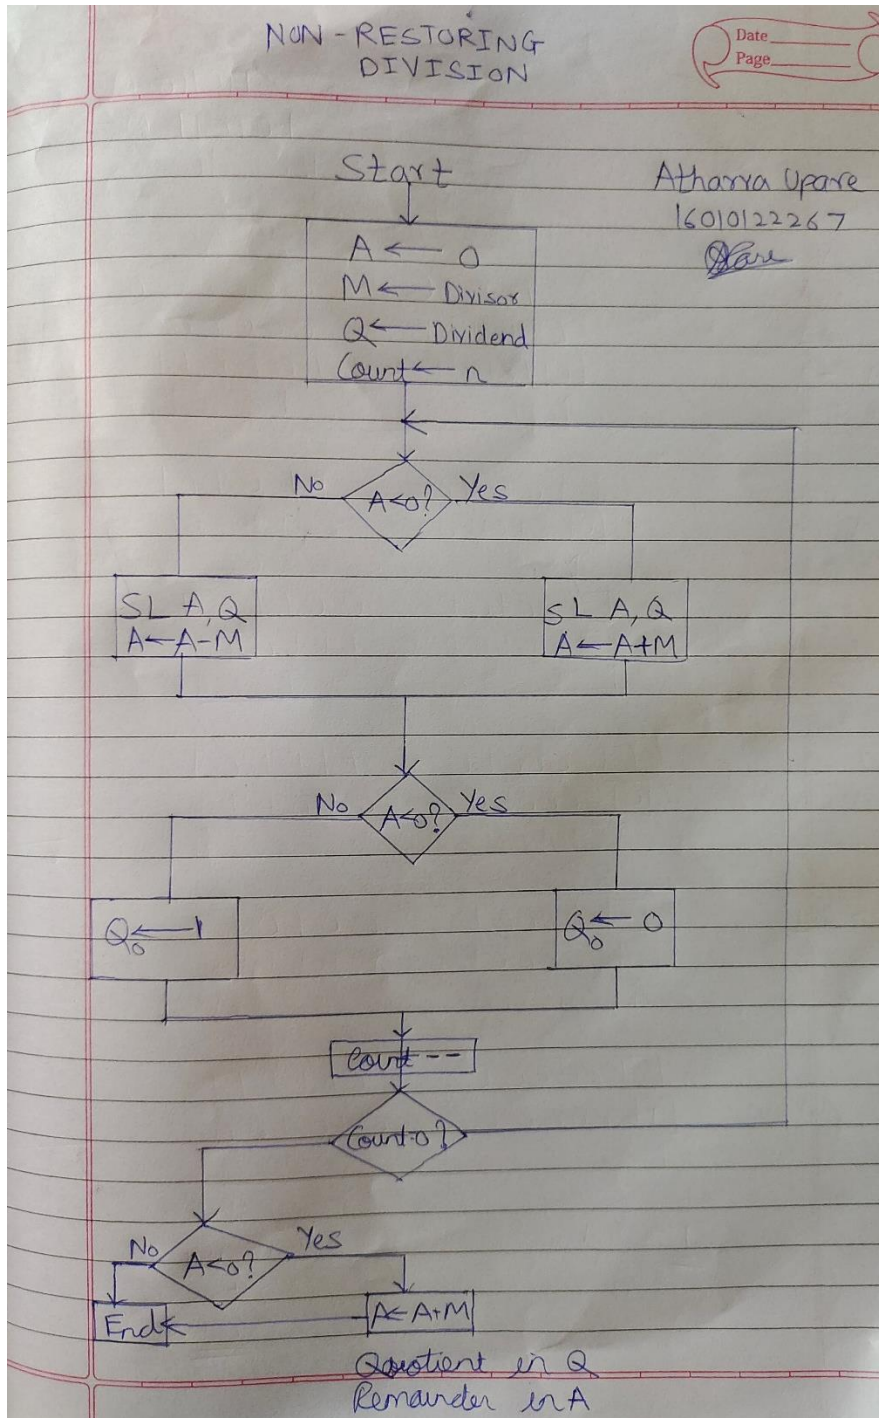 NON-RESTORING
DIVISION
Date
Page
Start
Atharva Upare
16010122267
A ← 0
M ← Divisor
Q ← Dividend
Count ← n
No
A<0?
Yes
SL A, Q
A ← A-M
SL A, Q
A ← A+M
No
A<0?
Yes
Q₀ ← 1
Q₀ ← 0
Count --
Count=0?
No
A<0?
Yes
End
A ← A+M
Quotient in Q
Remainder in A